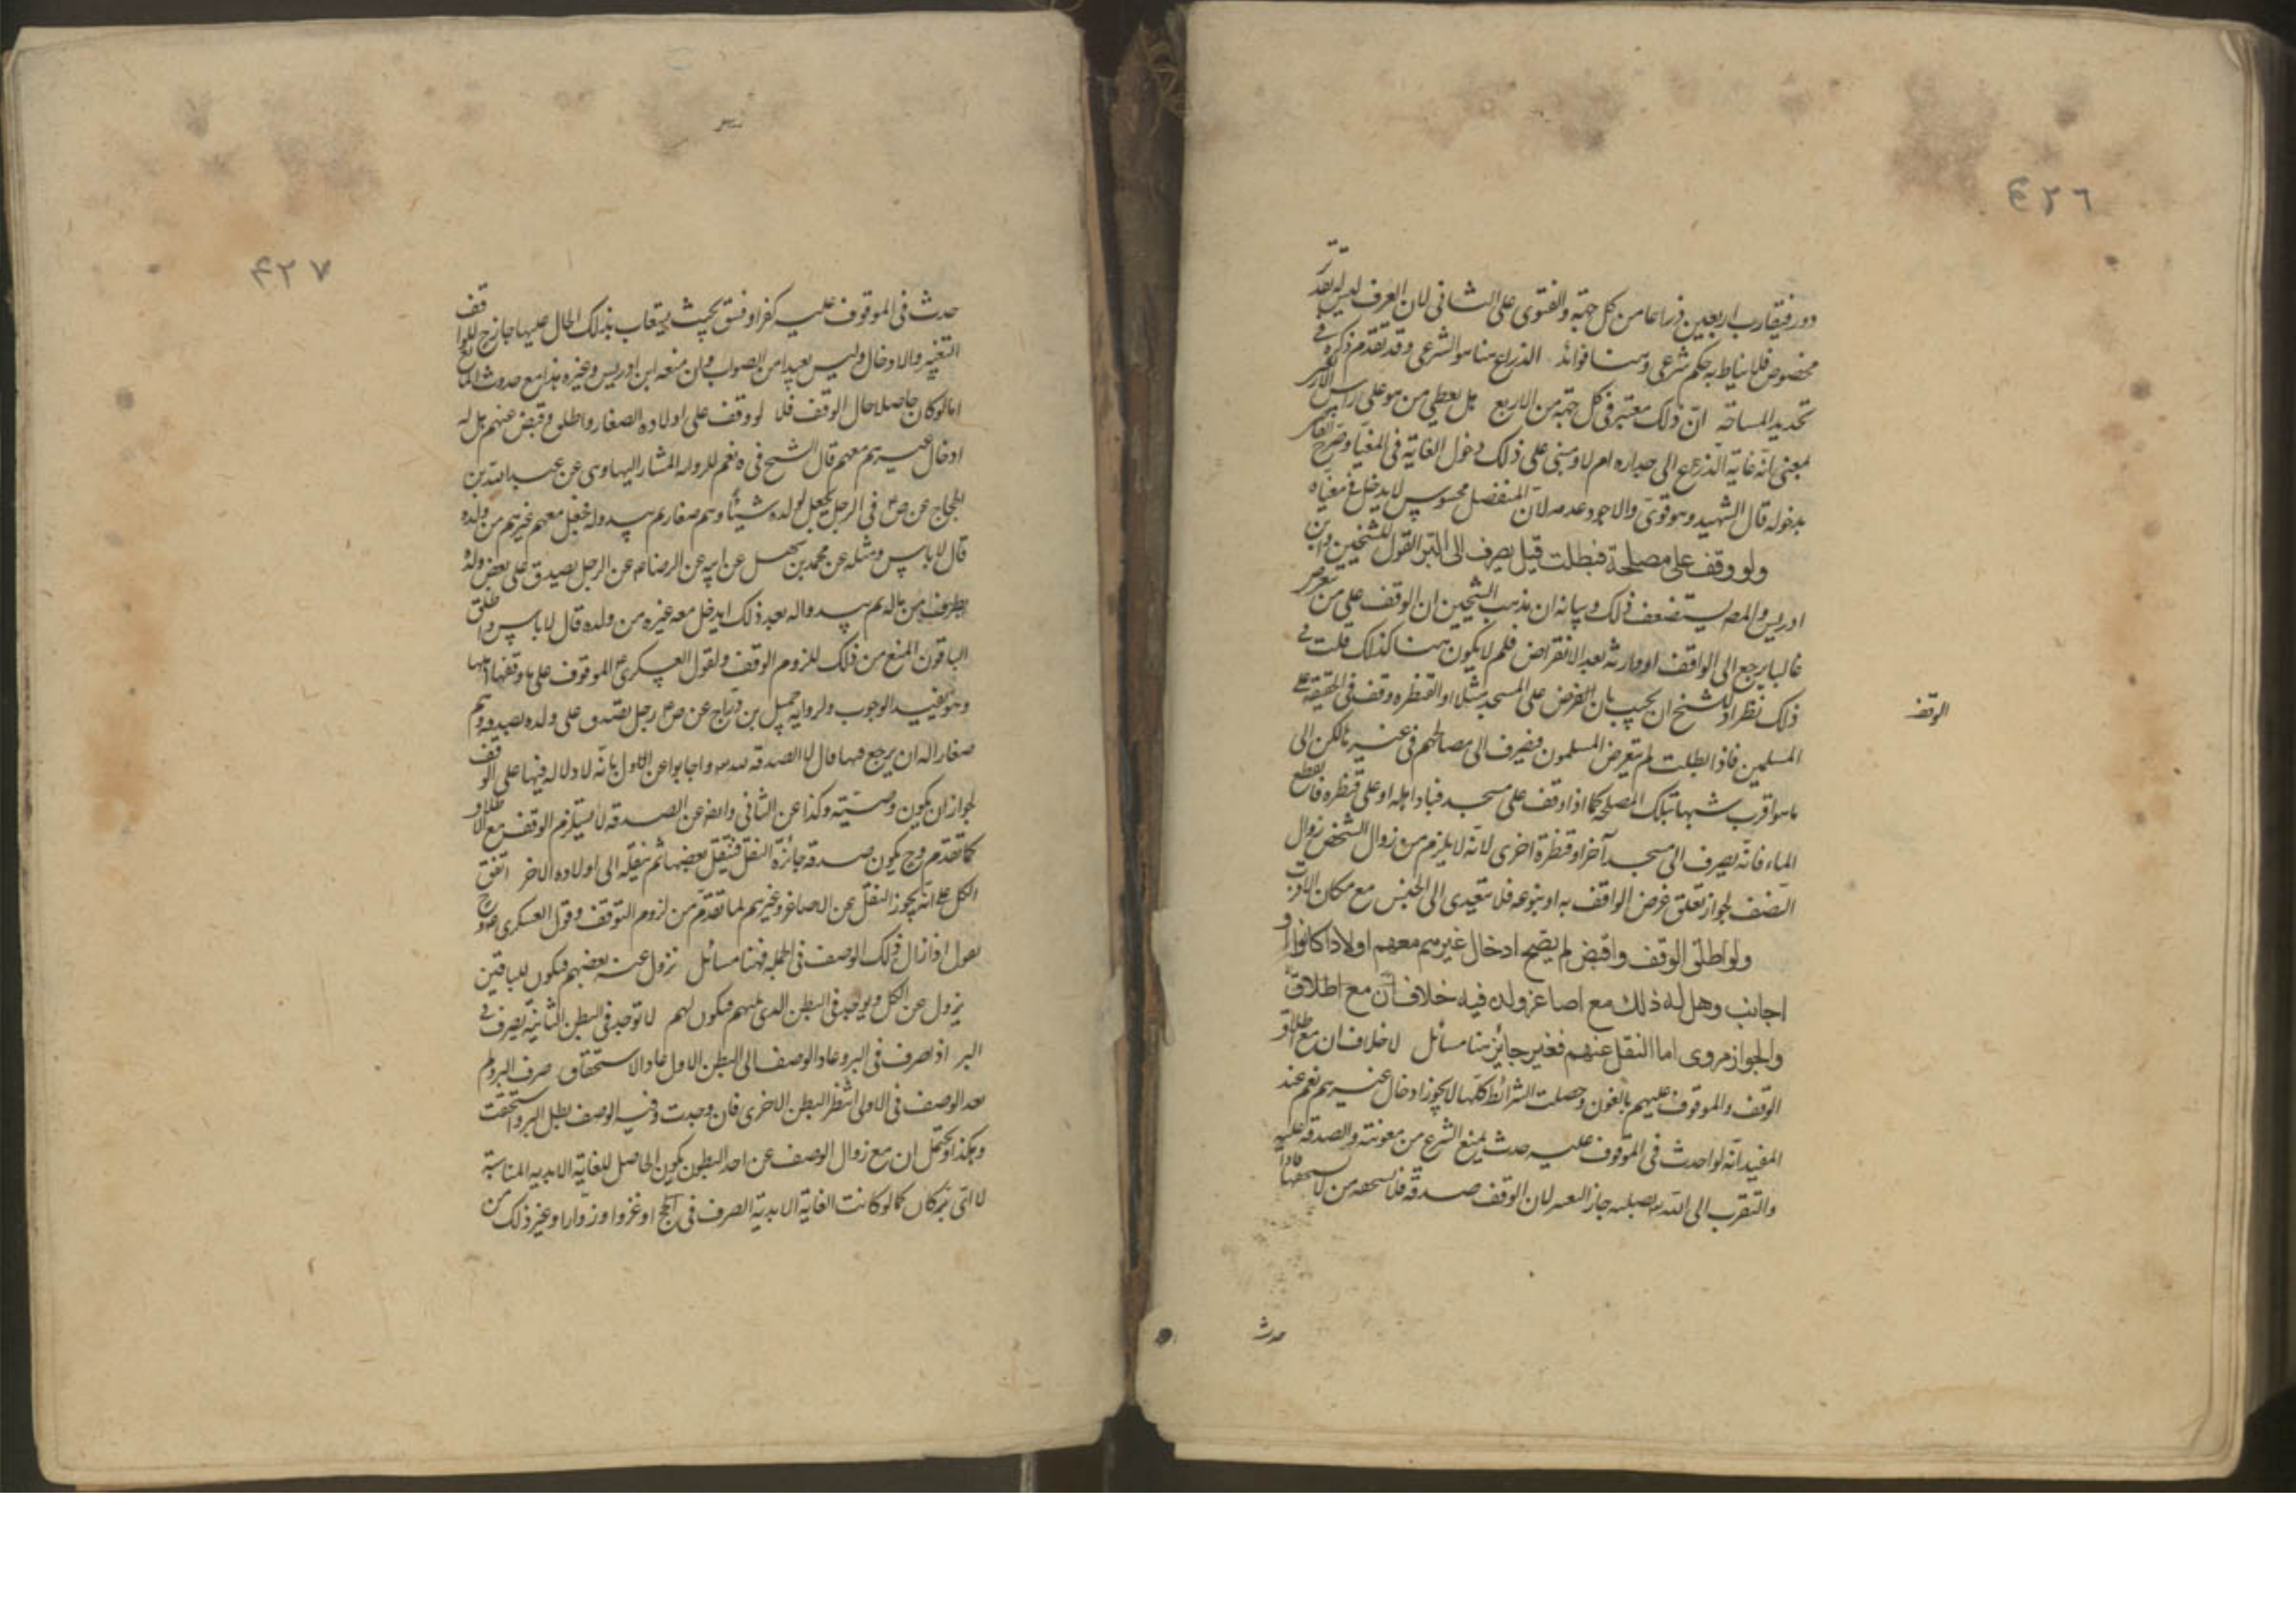 ٤٢٦
دور فيقارب اربعين ذراعا من كل جهة والفتوى على الثانى لان العرف ليس له تقدير
مخصوص فلا يناط به حكم شرعى وهنا فوائد الذراع هنا هو الشرعى وقد تقدم ذكره فى
تحديد المسافة ان ذلك معتبر فى كل جهة من الاربع هل يعطى من هو على راس الاربعين
بمعنى انه غاية الذرع الى جداره ام لا ومبنى على ذلك دخول الغاية فى المغيا وصرح
بدخوله قال الشهيد وهو قوى والاجود عدمه لان المنفصل محسوس لا يدخل فى مغياه
ولو وقف على مصلحة فبطلت قيل يصرف الى البر القول للشيخين وابن
ادريس والمصـ يستضعف ذلك وبيانه ان مذهب الشيخين ان الوقف على من ينقرض
غالبا يرجع الى الواقف او وارثه بعد الانقراض فلم لا يكون هنا كذلك قلت فى
ذلك نظر اذ للشيخ ان يجيب بان الغرض على المسجد مثلا او القنطره وقف فى الحقيقة على
الوقف
المسلمين فاذا بطلت لم ينقرض المسلمون فيصرف الى مصالحهم فى غيره لكن الى
ما هو اقرب شبها بتلك المصلحة كما اذا وقف على مسجد فباد اهله او على قنطره فانقطع
الماء فانه يصرف الى مسجد آخر او قنطرة اخرى لانه لا يلزم من زوال الشخص زوال
الصنف لجواز تعلق غرض الواقف به او بنوعه فلا يتعدى الى الجنس مع مكان الاقرب
ولو اطلق الوقف واقبض لم يصح ادخال غيرهم معهم اولادا كانوا او
اجانب وهل له ذلك مع اصاغر ولده فيه خلاف امّا مع اطلاق
والجواز مروى اما النقل عنهم فغير جائز هنا مسائل لا خلاف ان مع اطلاق
الوقف والموقوف عليهم بالغون وحصلت الشرائط كلها لا يجوز ادخال غيرهم نعم عند
المفيد انه لو احدث فى الموقوف عليه حدث يمنع الشرع من معونته والصدقة عليه
والتقرب الى الله بصلته جاز التغيير لان الوقف صدقة فلا يستحقه من لا يستحقها فاذا
حدث
٤٢٧
حدث فى الموقوف عليه كفر او فسق بحيث يستعان بذلك المال عليها جاز ح للواقف
التغيير والادخال وليس بعيدا من الصواب وان منعه ابن ادريس وغيره هذا مع حدوث المانع
اما لو كان حاصلا حال الوقف فلا لو وقف على اولاده الصغار واطلق وقبض عنهم هل له
ادخال غيرهم معهم قال الشيخ فى ه نعم للروايه المشار اليها وهى عن عبد الله بن
الحجاج عن ص ع فى الرجل يجعل لولده شيئا وهم صغار ثم يبدو له فيجعل معهم غيرهم من ولده
قال لا باس ومثله عن محمد بن سهل عن ابيه عن الرضا ع عن الرجل يصدق على بعض ولده
بطرف من ماله ثم يبدو له بعد ذلك ان يدخل معه غيره من ولده قال لا باس واطلق
الباقون المنع من ذلك للزوم الوقف ولقول العسكرى ع الوقوف على ما وقفها اهلها
وهو يفيد الوجوب ولرواية جميل بن دراج عن ص ع رجل يصدق على ولده بصدقه وهم
صغار اله ان يرجع فيها قال لا الصدقه لله واجابوا عن الاول بانه لا دلاله فيها على الوقف
لجواز ان يكون وصيّة وكذا عن الثانى وايضا عن الصدقه لا يستلزم الوقف مع الاطلاق
كما تقدم وح يكون صدقه جائزة النقل فينقل بعضها ثم ينقله الى اولاده الاخر اتفق
الكل على انه يجوز النقل عن الاصاغر وغيرهم لما تقدم من لزوم الوقف وقول العسكرى ع وح
يقول اذا زال ذلك الوصف فى الجمله فهنا مسائل يزول عن بعضهم فيكون للباقين
يزول عن الكل ويوجد فى البطن الذى يليهم فيكون لهم لا توجد فى البطن الثانية يصرف فى
البر اذا صرف فى البر وعاد الوصف الى البطن الاول عاد الاستحقاق صرف البر ولم
يعد الوصف فى الاولى انتظر البطن الاخرى فان وجدت وفيه الوصف بطل البر واستحقت
وهكذا ويحتمل ان مع زوال الوصف عن احد البطون يكون الحاصل للغاية الابديه المناسبة
لا اى بر كان كما لو كانت الغاية الابدية الصرف فى الحج او غزوا وزوارا وغير ذلك من